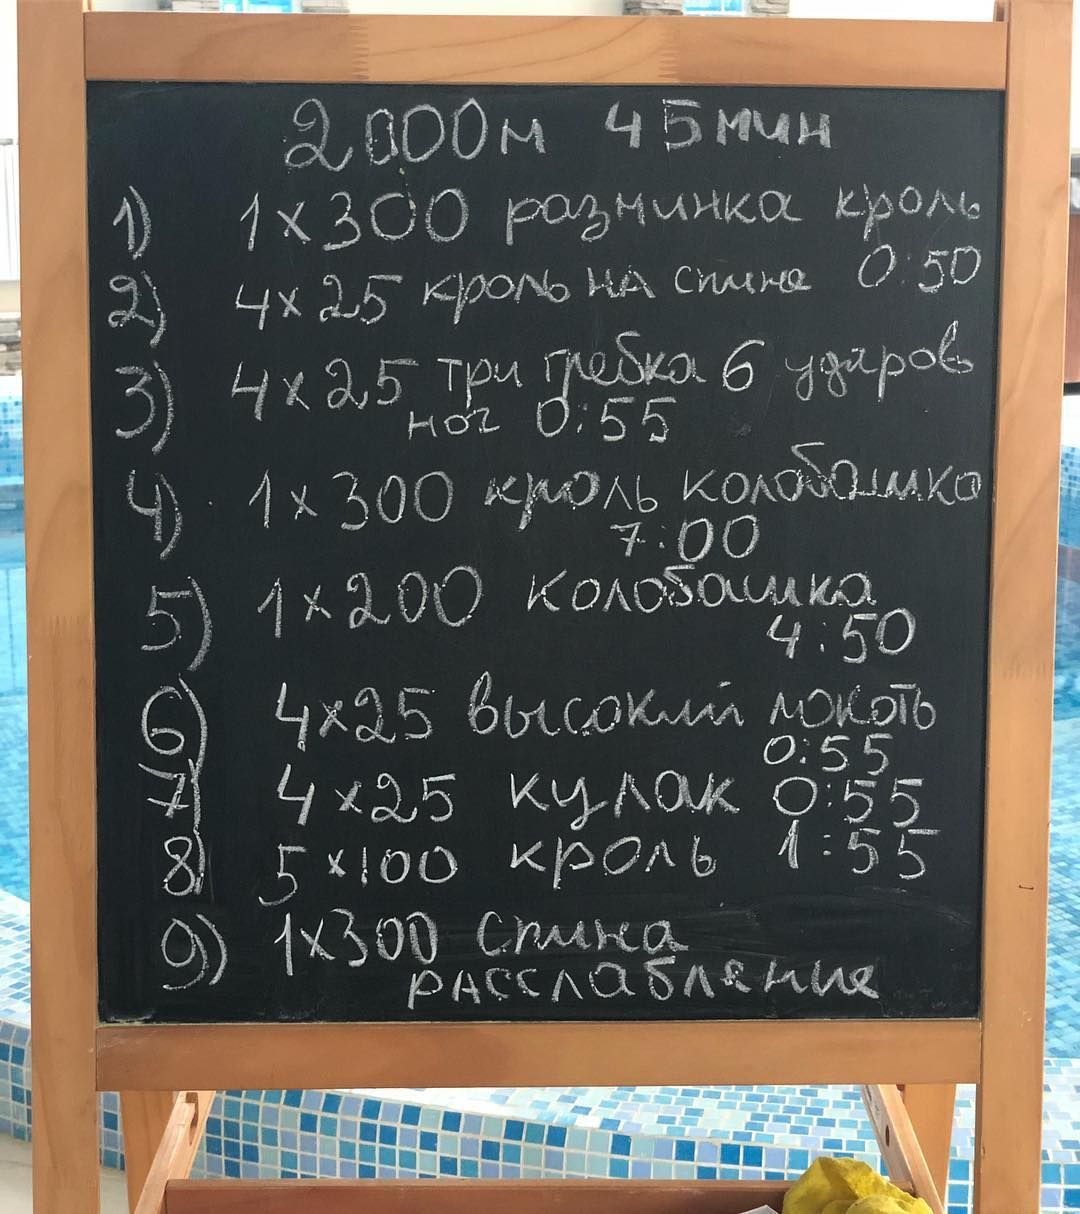 2000м 45мин
1) 1×300 разминка кроль
2) 4×25 кроль на спине 0:50
3) 4×25 три гребка 6 ударов
ног 0:55
4) 1×300 кроль колобашка
7:00
5) 1×200 колобашка
4:50
6) 4×25 высокий локоть
0:55
7) 4×25 кулак 0:55
8) 5×100 кроль 1:55
9) 1×300 спина
расслабление